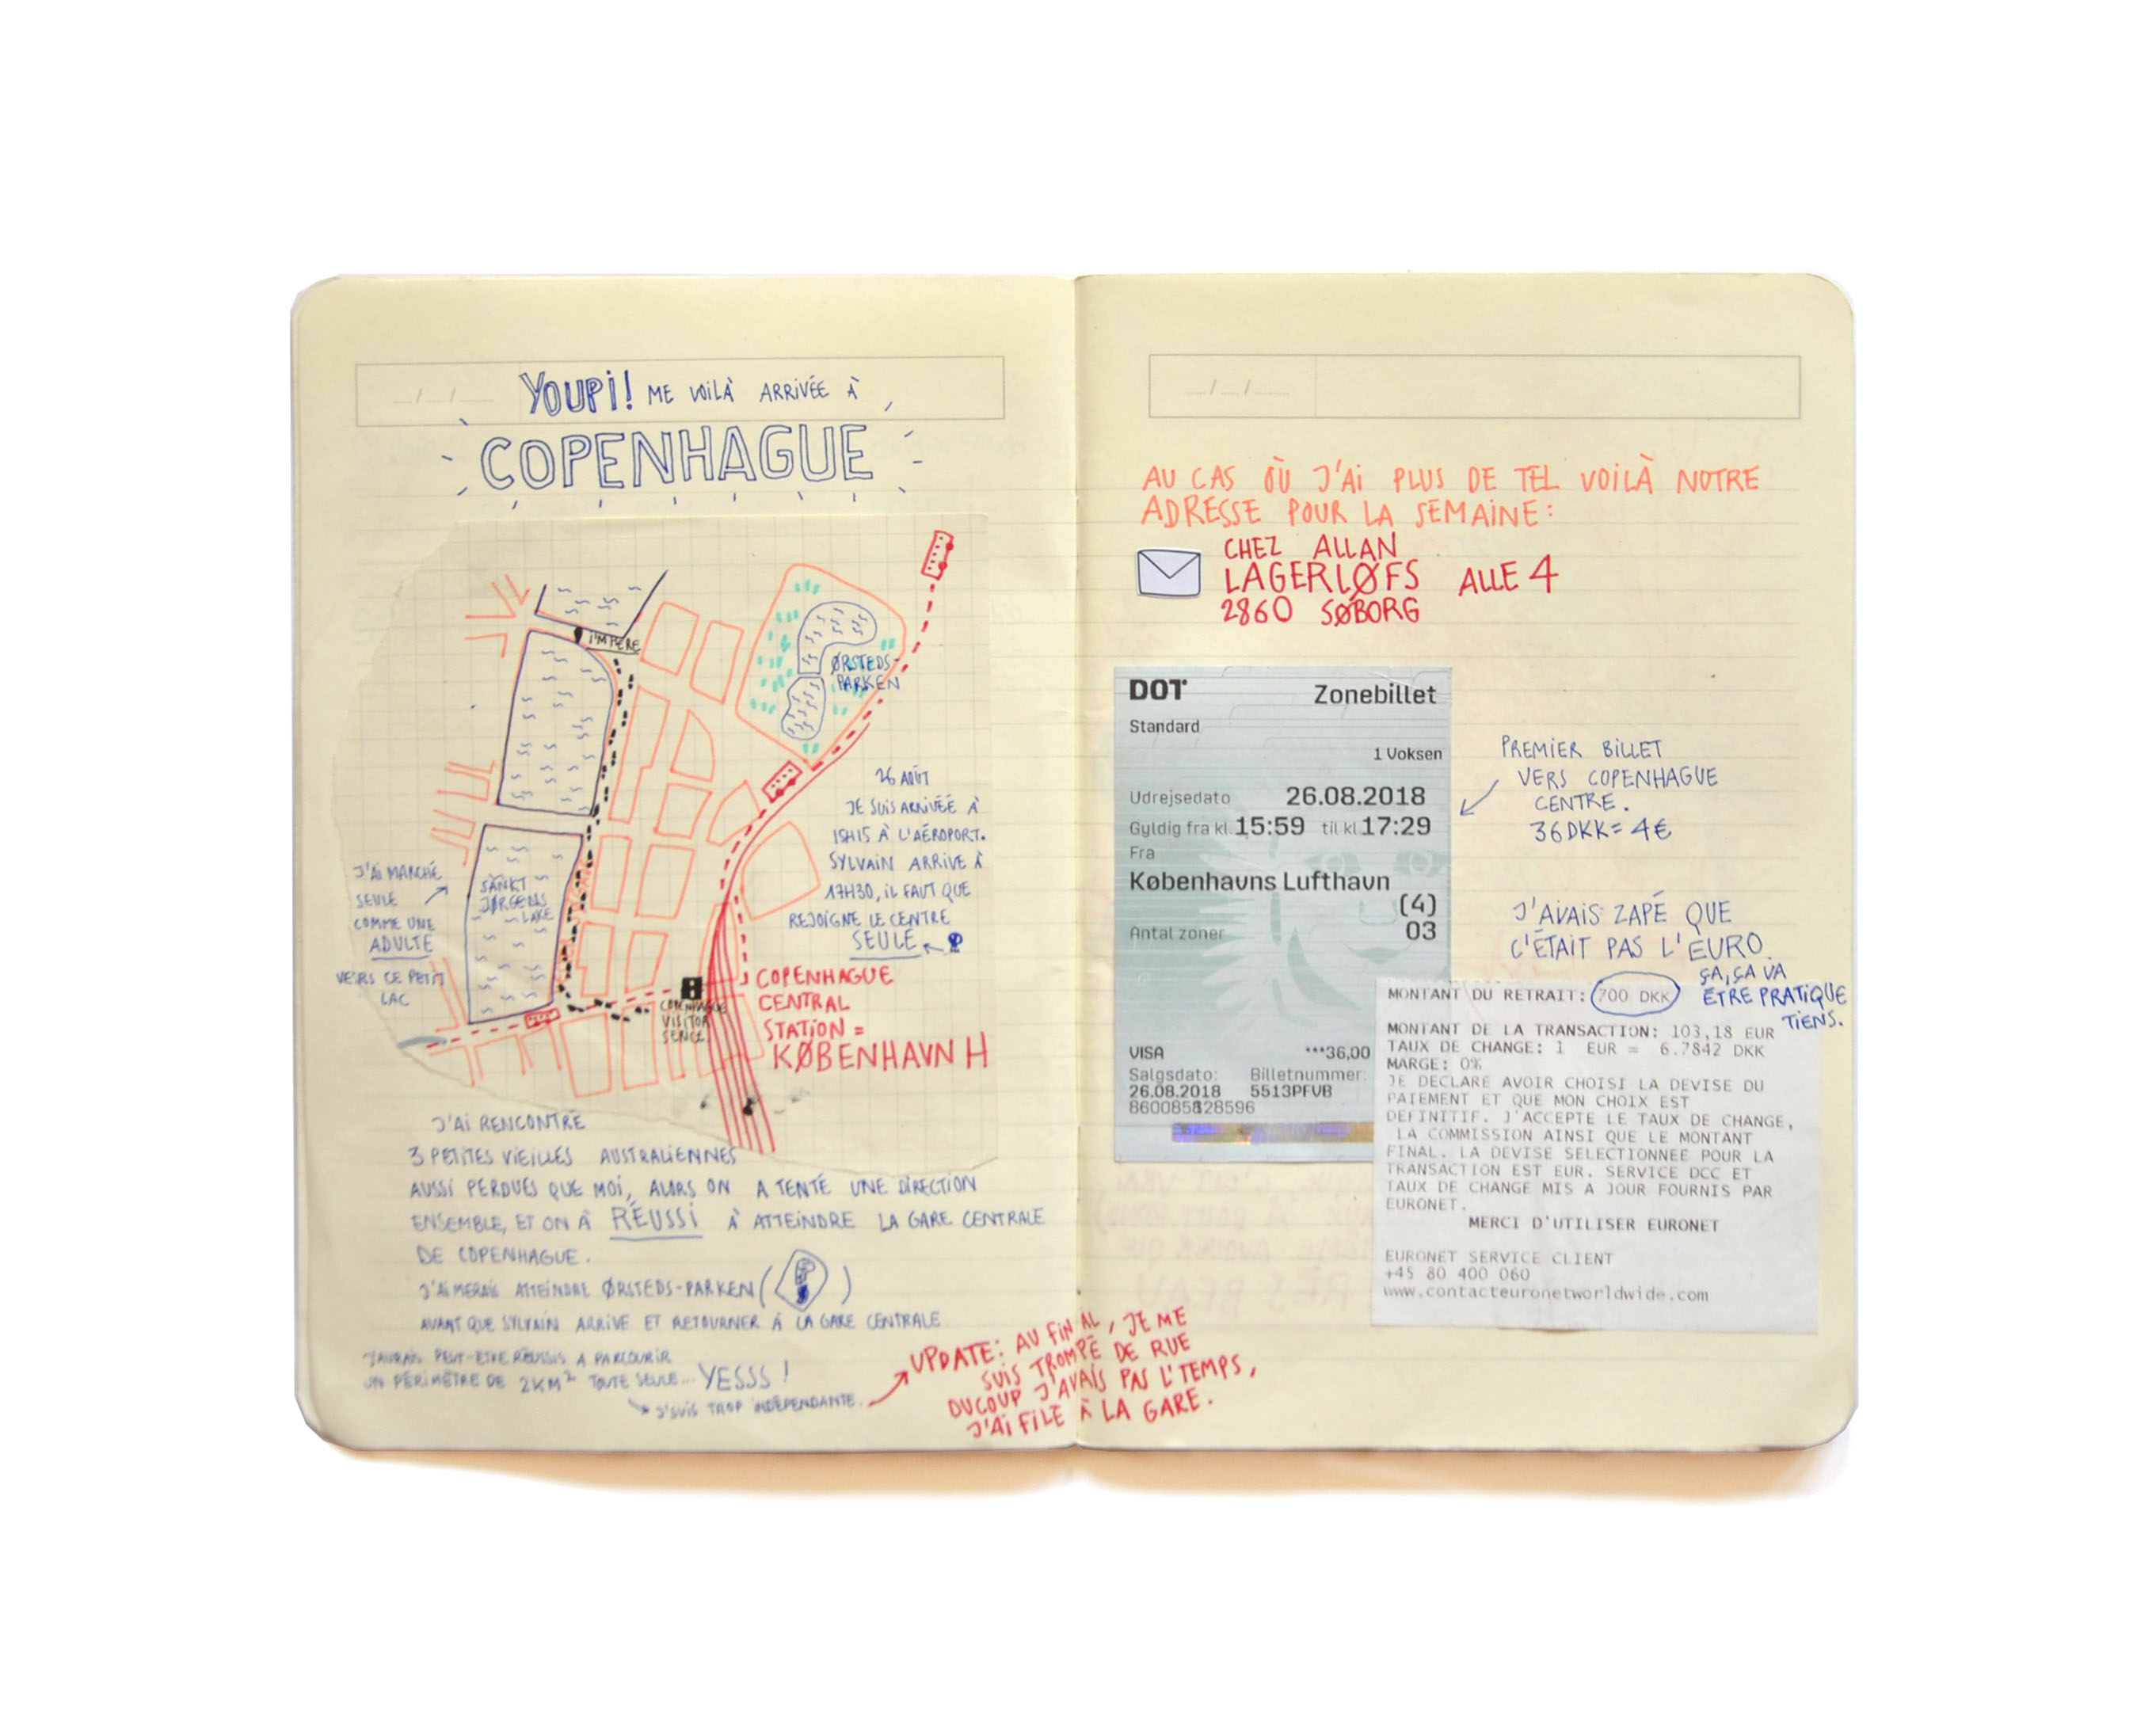 YOUPI! ME VOILÀ ARRIVÉE À
COPENHAGUE
I'M HERE
ØRSTEDS-
PARKEN
26 AOÛT
JE SUIS ARRIVÉE À
15H15 À L'AÉROPORT.
SYLVAIN ARRIVE À
17H30, IL FAUT QUE
REJOIGNE LE CENTRE
SEULE
J'AI MARCHÉ
SEULE
COMME UNE
ADULTE
VERS CE PETIT
LAC
SANKT
JØRGENS
LAKE
COPENHAGUE
VISITOR
COPENHAGUE
CENTRAL
STATION =
KØBENHAVN H
J'AI RENCONTRÉ
3 PETITES VIEILLES AUSTRALIENNES
AUSSI PERDUES QUE MOI, ALORS ON A TENTÉ UNE DIRECTION
ENSEMBLE, ET ON À RÉUSSI À ATTEINDRE LA GARE CENTRALE
DE COPENHAGUE.
J'AIMERAIS ATTEINDRE ØRSTEDS-PARKEN ( )
AVANT QUE SYLVAIN ARRIVE ET RETOURNER À LA GARE CENTRALE
J'AURAIS PEUT-ETRE RÉUSSIS A PARCOURIR
UN PÉRIMÈTRE DE 2KM² TOUTE SEULE... YESSS!
J'SUIS TROP INDÉPENDANTE.
UPDATE: AU FINAL, JE ME
SUIS TROMPÉ DE RUE
DUCOUP J'AVAIS PAS L'TEMPS,
J'AI FILÉ À LA GARE.
AU CAS OÙ J'AI PLUS DE TEL VOILÀ NOTRE
ADRESSE POUR LA SEMAINE:
CHEZ ALLAN
LAGERLØFS ALLE 4
2860 SØBORG
DOT Zonebillet
Standard
1 Voksen
Udrejsedato 26.08.2018
Gyldig fra kl. 15:59 til kl. 17:29
Fra
Københavns Lufthavn
(4)
Antal zoner 03
VISA ***36,00
Salgsdato: Billetnummer:
26.08.2018 5513PFVB
860085828596
PREMIER BILLET
VERS COPENHAGUE
CENTRE.
36DKK= 4€
J'AVAIS ZAPÉ QUE
C'ÉTAIT PAS L'EURO.
ÇA, ÇA VA
ÊTRE PRATIQUE
TIENS.
MONTANT DU RETRAIT: 700 DKK
MONTANT DE LA TRANSACTION: 103,18 EUR
TAUX DE CHANGE: 1 EUR = 6.7842 DKK
MARGE: 0%
JE DECLARE AVOIR CHOISI LA DEVISE DU
PAIEMENT ET QUE MON CHOIX EST
DEFINITIF. J'ACCEPTE LE TAUX DE CHANGE,
LA COMMISSION AINSI QUE LE MONTANT
FINAL. LA DEVISE SELECTIONNEE POUR LA
TRANSACTION EST EUR. SERVICE DCC ET
TAUX DE CHANGE MIS A JOUR FOURNIS PAR
EURONET.
MERCI D'UTILISER EURONET
EURONET SERVICE CLIENT
+45 80 400 060
www.contacteuronetworldwide.com